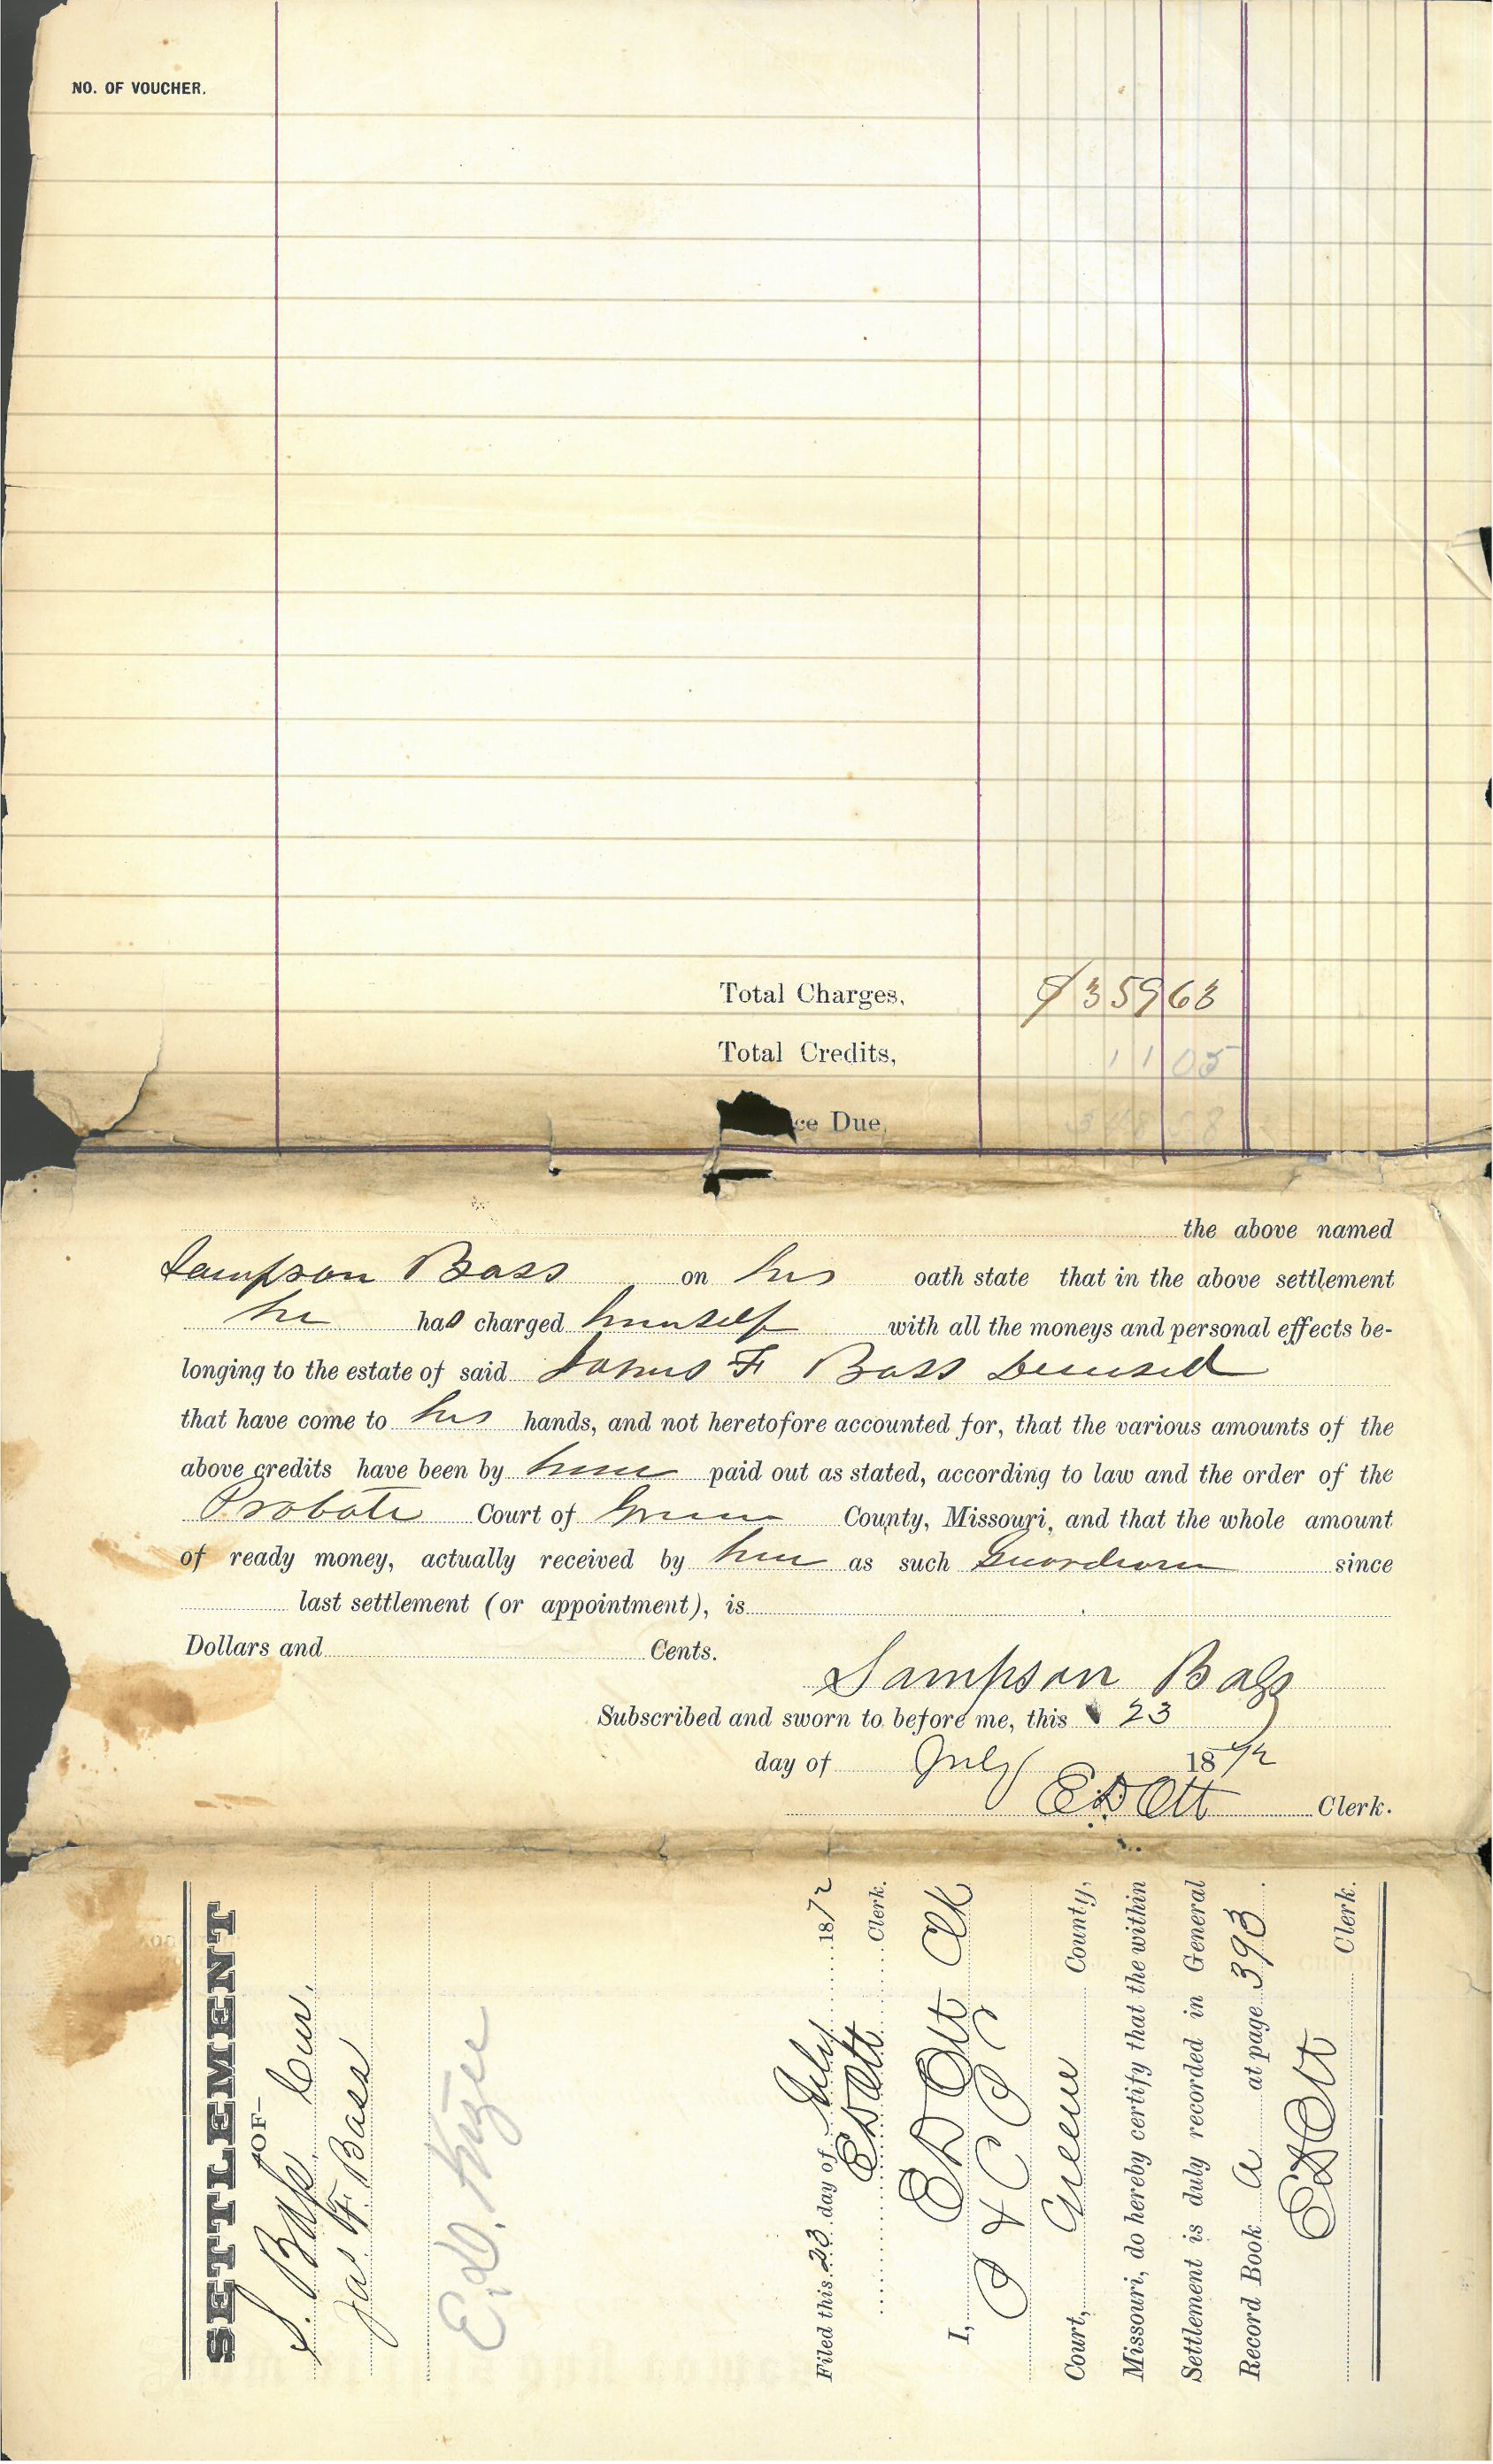 NO. OF VOUCHER.
Total Charges, $359 63
Total Credits, 11 05
ce Due, 348 58
the above named
Sampson Bass on his oath state that in the above settlement
he has charged himself with all the moneys and personal effects be-
longing to the estate of said James F Bass Deceased
that have come to his hands, and not heretofore accounted for, that the various amounts of the
above credits have been by him paid out as stated, according to law and the order of the
Probate Court of Greene County, Missouri, and that the whole amount
of ready money, actually received by him as such Guardian since
last settlement (or appointment), is
Dollars and Cents.
Sampson Bass
Subscribed and sworn to before me, this 23
day of July 1872
E D Ott Clerk.
SETTLEMENT
—OF—
S. Bass Cur.
Jas F. Bass
Filed this 23 day of July 1872
E D Ott Clerk.
I, E D Ott Clk
Court, Greene County,
Missouri, do hereby certify that the within
Settlement is duly recorded in General
Record Book A at page 393.
E D Ott
Clerk.